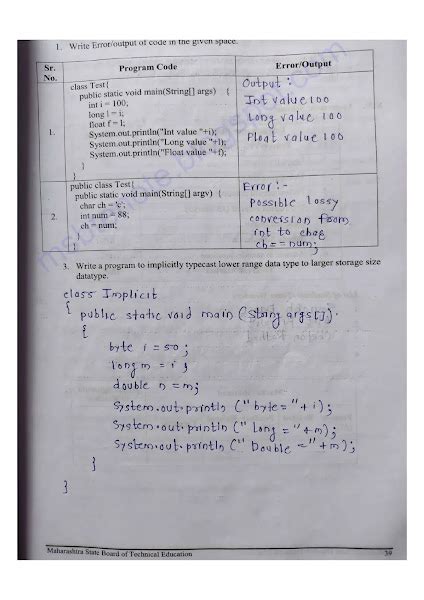 1. Write Error/output of code in the given space.
Sr. No. Program Code Error/Output
1.
class Test{
public static void main(String[] args) {
int i = 100;
long l = i;
float f = l;
System.out.println("Int value "+i);
System.out.println("Long value "+l);
System.out.println("Float value "+f);
}
}
Output :
Int value 100
Long value 100
Float value 100
2.
public class Test{
public static void main(String[] argv) {
char ch = 'c';
int num = 88;
ch = num;
}
}
Error :-
Possible lossy
conversion from
int to char
ch = = num;
3. Write a program to implicitly typecast lower range data type to larger storage size
datatype.
class Implicit
{ public static void main (String args[])
{
byte i = 50 ;
long m = i ;
double n = m;
System.out.println (" byte = " + i);
System.out.println (" Long = " + m);
System.out.println (" Double = " + m);
}
}
Maharashtra State Board of Technical Education 39